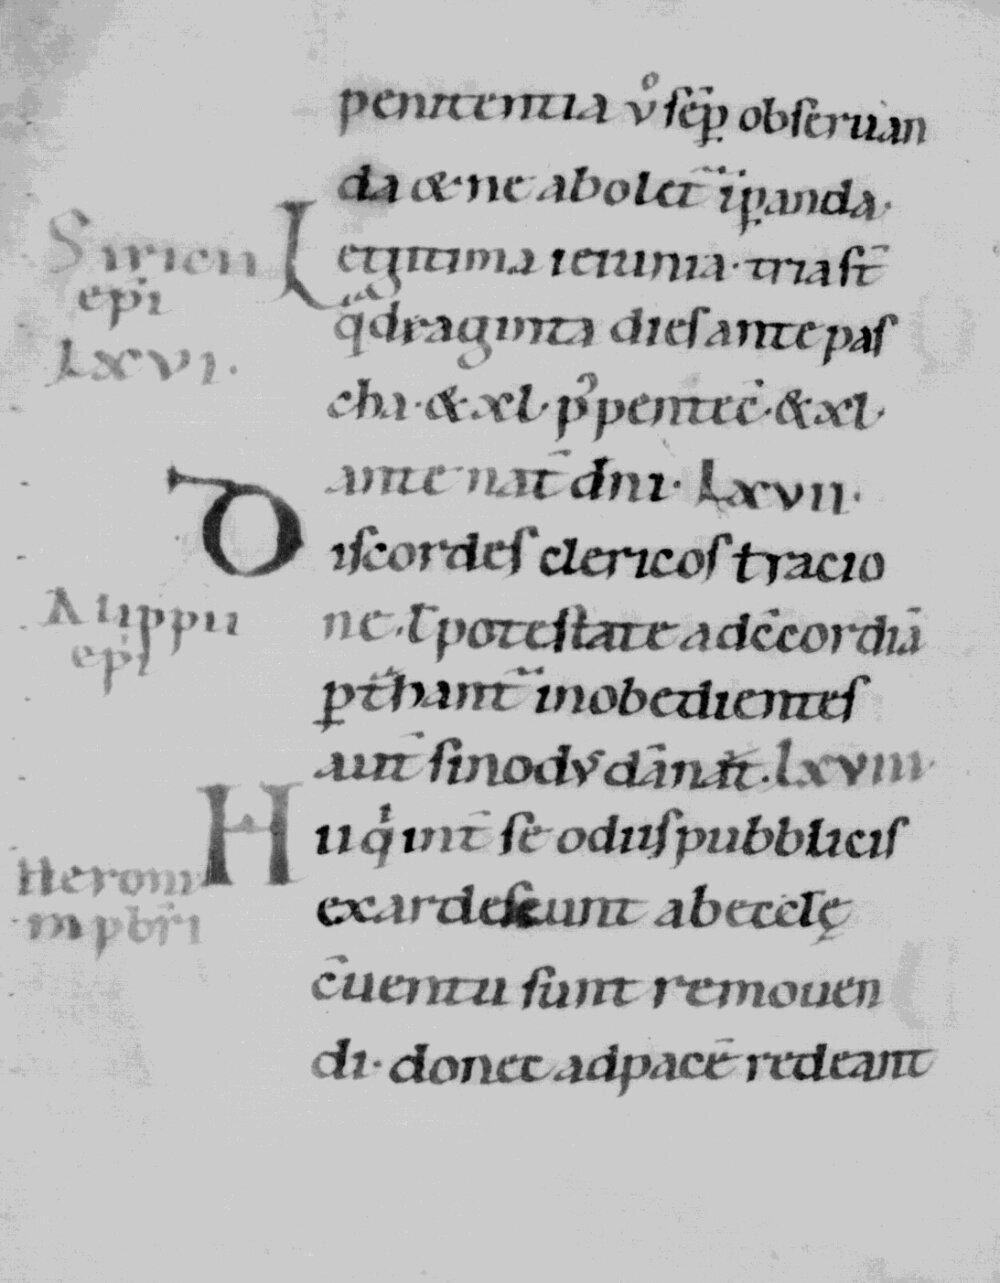 penitentia v̊ sēp̄ obseruan
da & ne abolet̄ īp̱anda·
Siricii
epi
Lxvi·
Legittima ieiunia· tria st̄
qͣdraginta dies ante pas
cha· & xl· p̓ pentec̄· & xl·
ante nat̄ dn̄i· Lxvii·
Discordes clericos t racio
ne· t̄ potestate ad c̄cordiā
Alippii
epi
p̱t̄hant̄ inobedientes
aut̄ sinodꝰ dānat̄· lxviii·
Hieroni
mi pbr̄i
Hii qͥ int̄ se odiis pubblicis
exardescunt ab eccłę
c̄uentu sunt remouen
di· donec ad pacē redeant